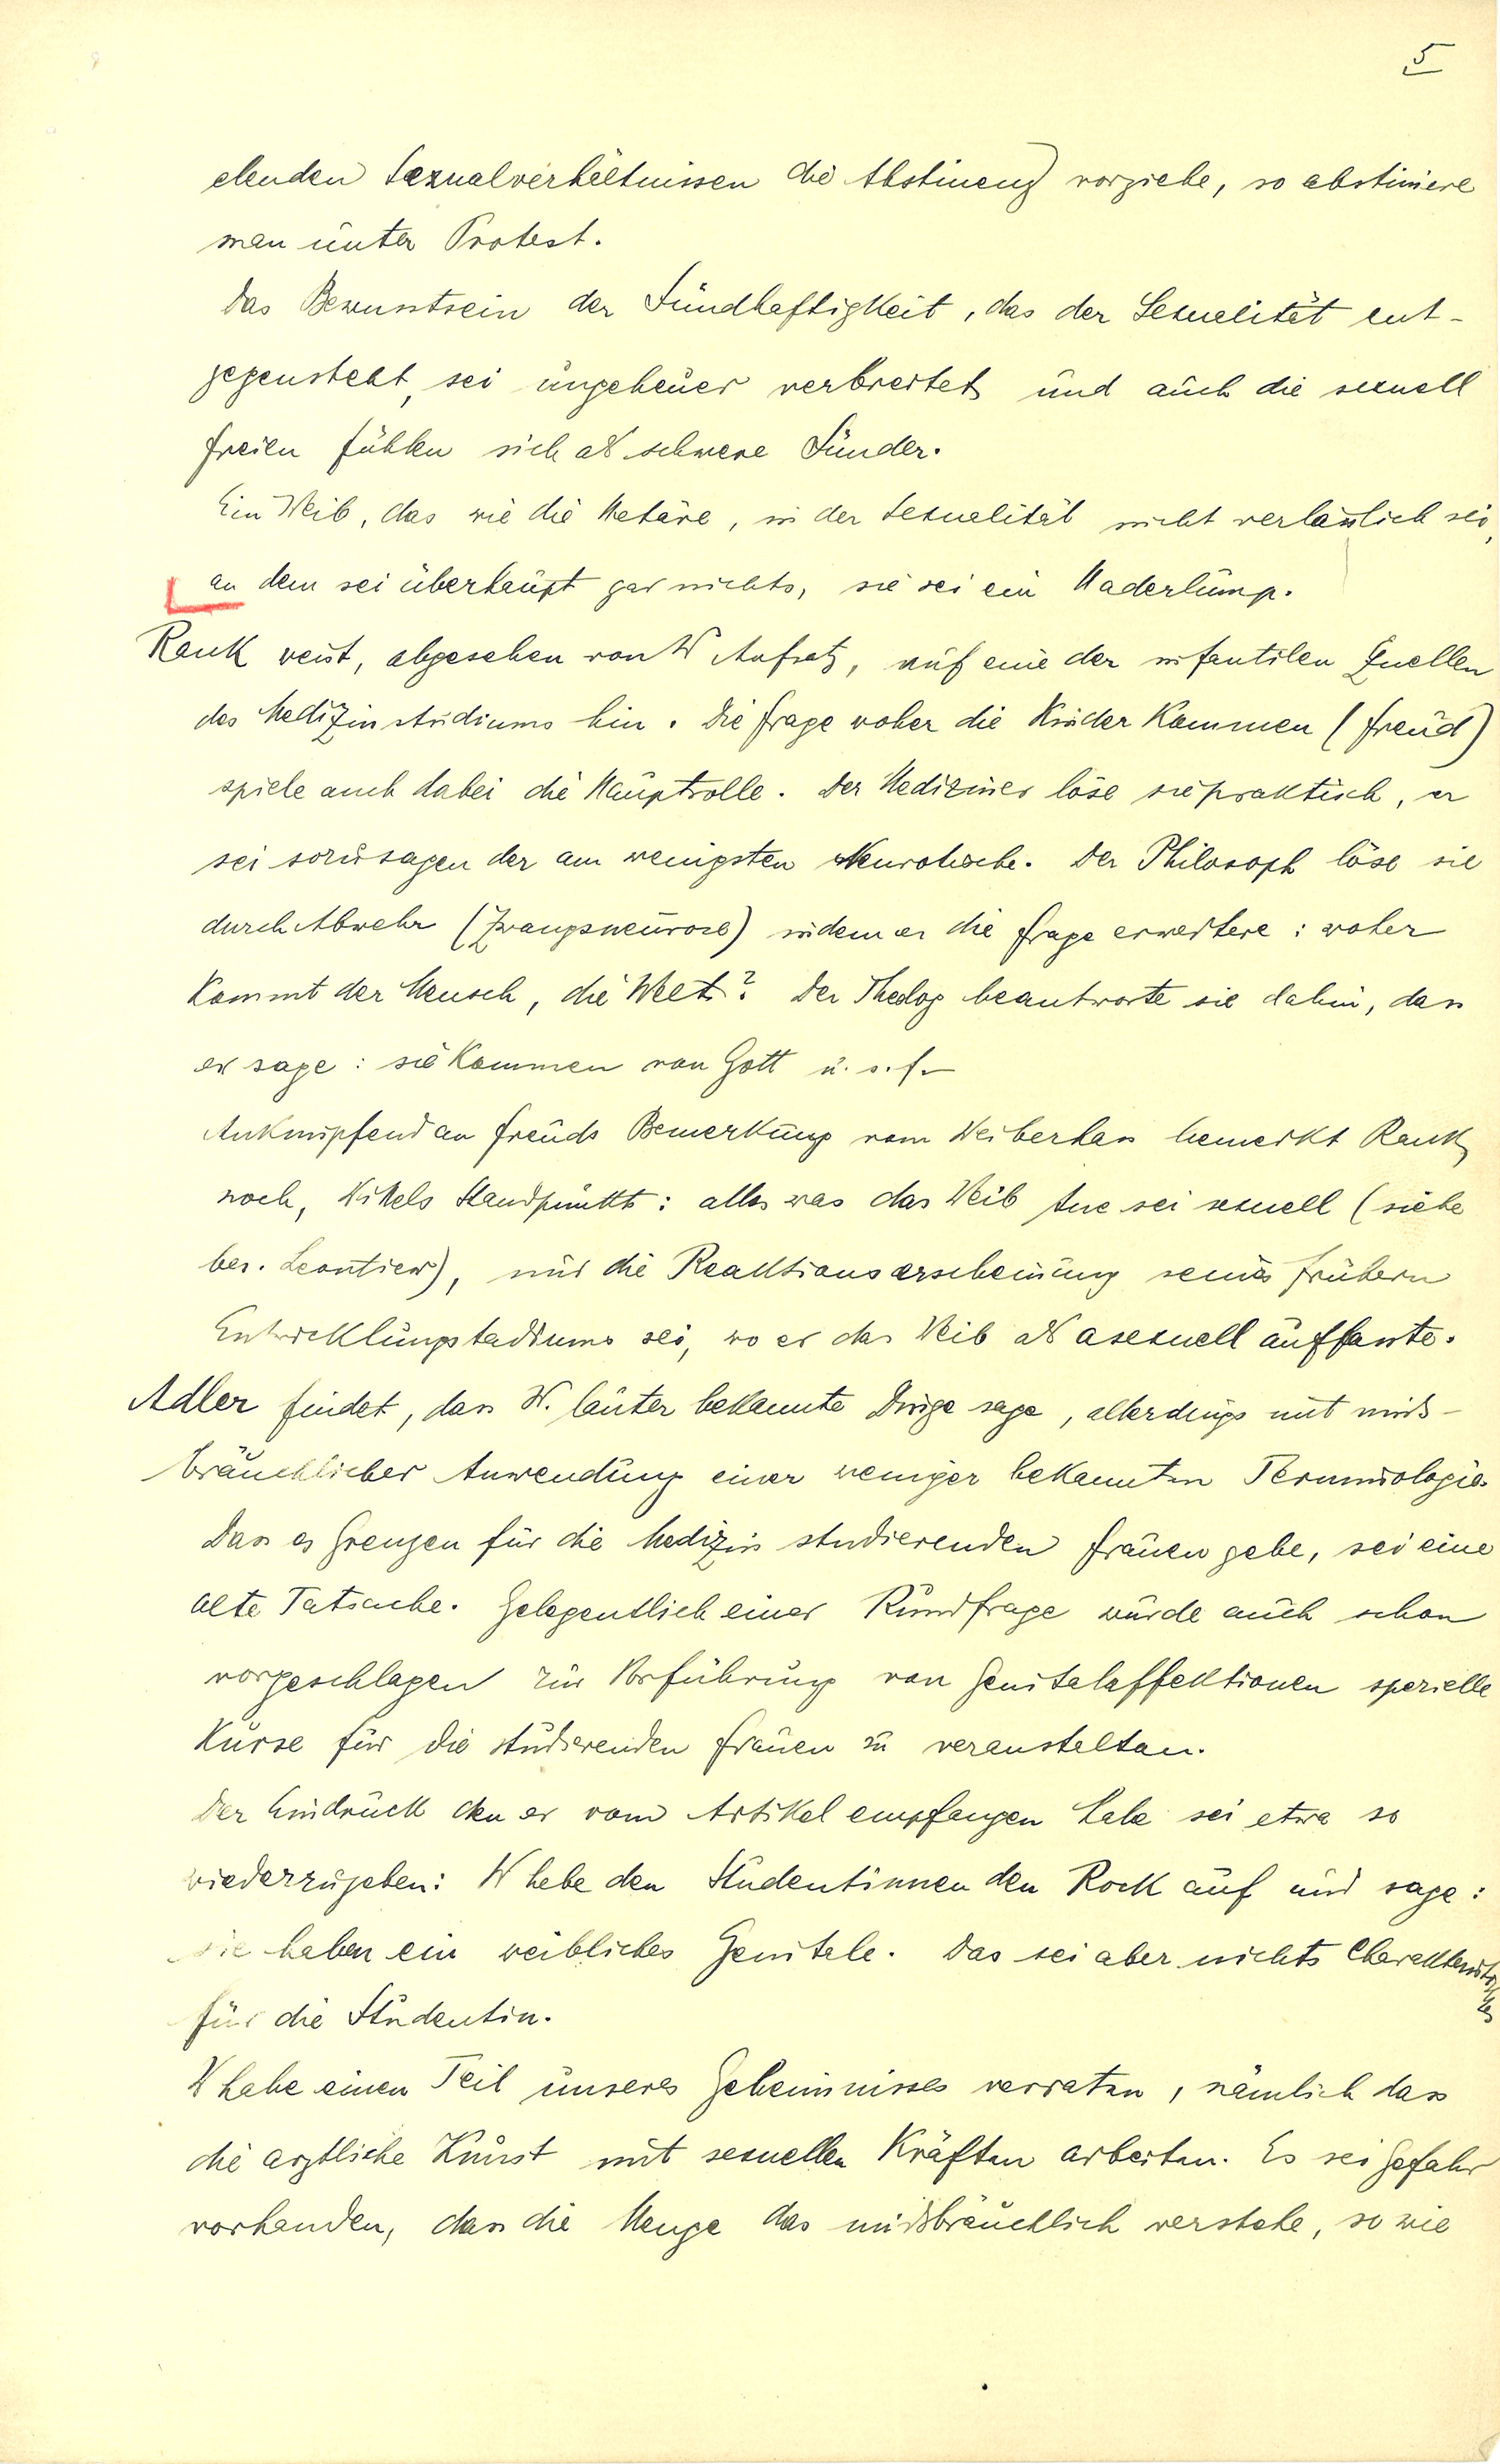 5
elenden Sexualverhältnissen die Abstinenz vorziehe, so abstiniere
man unter Protest.
Das Bewusstsein der Sündhaftigkeit, das der Sexualität ent-
gegensteht, sei ungeheuer verbreitet und auch die sexuell
freien fühlen sich als schwere Sünder.
Ein Weib, das wie die Hetäre, in der Sexualität nicht verlässlich sei,
an dem sei überhaupt gar nichts, sie sei ein Haderlump.
Rank weist, abgesehen von W Aufsatz, auf eine der infantilen Quellen
des Medizinstudiums hin. Die Frage woher die Kinder kommen (Freud)
spiele auch dabei die Hauptrolle. Der Mediziner löse sie praktisch, er
sei sozusagen der am wenigsten Neurotische. Der Philosoph löse sie
durch Abwehr (Zwangsneurose) indem er die Frage erweitere: woher
kommt der Mensch, die Welt? Der Theolog beantworte sie dahin, dass
er sage: sie kommen von Gott u. s. f.
Anknüpfend an Freuds Bemerkung vom Weiberhass bemerkt Rank
noch, Wittels Standpunkt: alles was das Weib tue sei sexuell (siehe
bes. Leontiew), nur die Reaktionserscheinung seines frühern
Entwicklungstadiums sei, wo er das Weib als asexuell auffasste.
Adler findet, dass W. lauter bekannte Dinge sage, allerdings mit miss-
bräuchlicher Anwendung einer weniger bekannten Terminologie.
Dass es Grenzen für die Medizin studierenden Frauen gebe, sei eine
alte Tatsache. Gelegentlich einer Rundfrage wurde auch schon
vorgeschlagen zur Vorführung von Genitalaffektionen spezielle
Kurse für die studierenden Frauen zu veranstalten.
Der Eindruck den er vom Artikel empfangen habe sei etwa so
wiederzugeben: W hebe den Studentinnen den Rock auf und sage:
sie haben ein weibliches Genitale. Das sei aber nichts Charakteristisches
für die Studentin.
W habe einen Teil unseres Geheimnisses verraten, nämlich dass
die ärztliche Kunst mit sexuellen Kräften arbeiten. Es sei Gefahr
vorhanden, dass die Menge das missbräuchlich verstehe, so wie